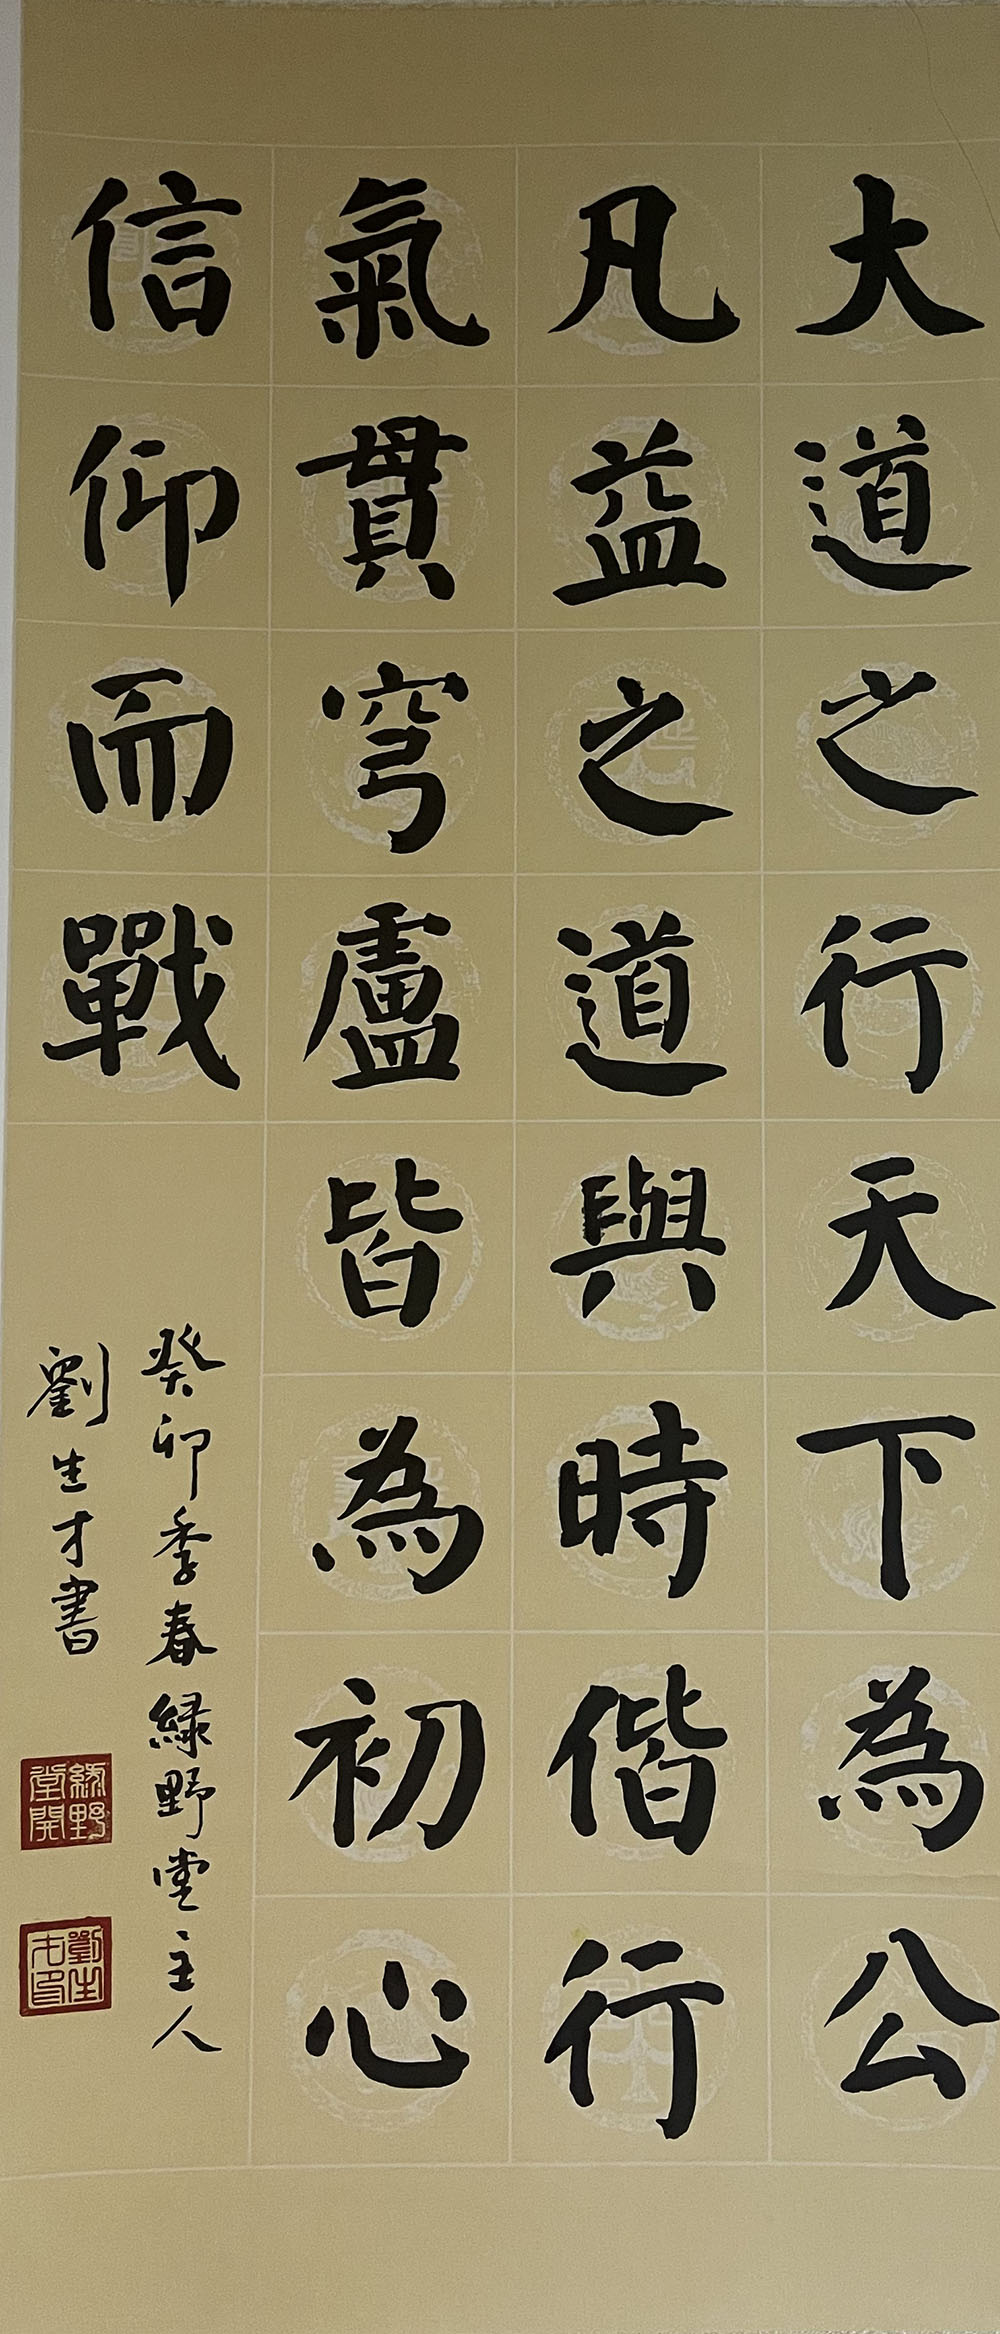 大道之行天下為公
凡益之道與時偕行
氣貫穹盧皆為初心
信仰而戰
癸卯季春緑野堂主人
劉生才書
綠野堂開
劉生才印